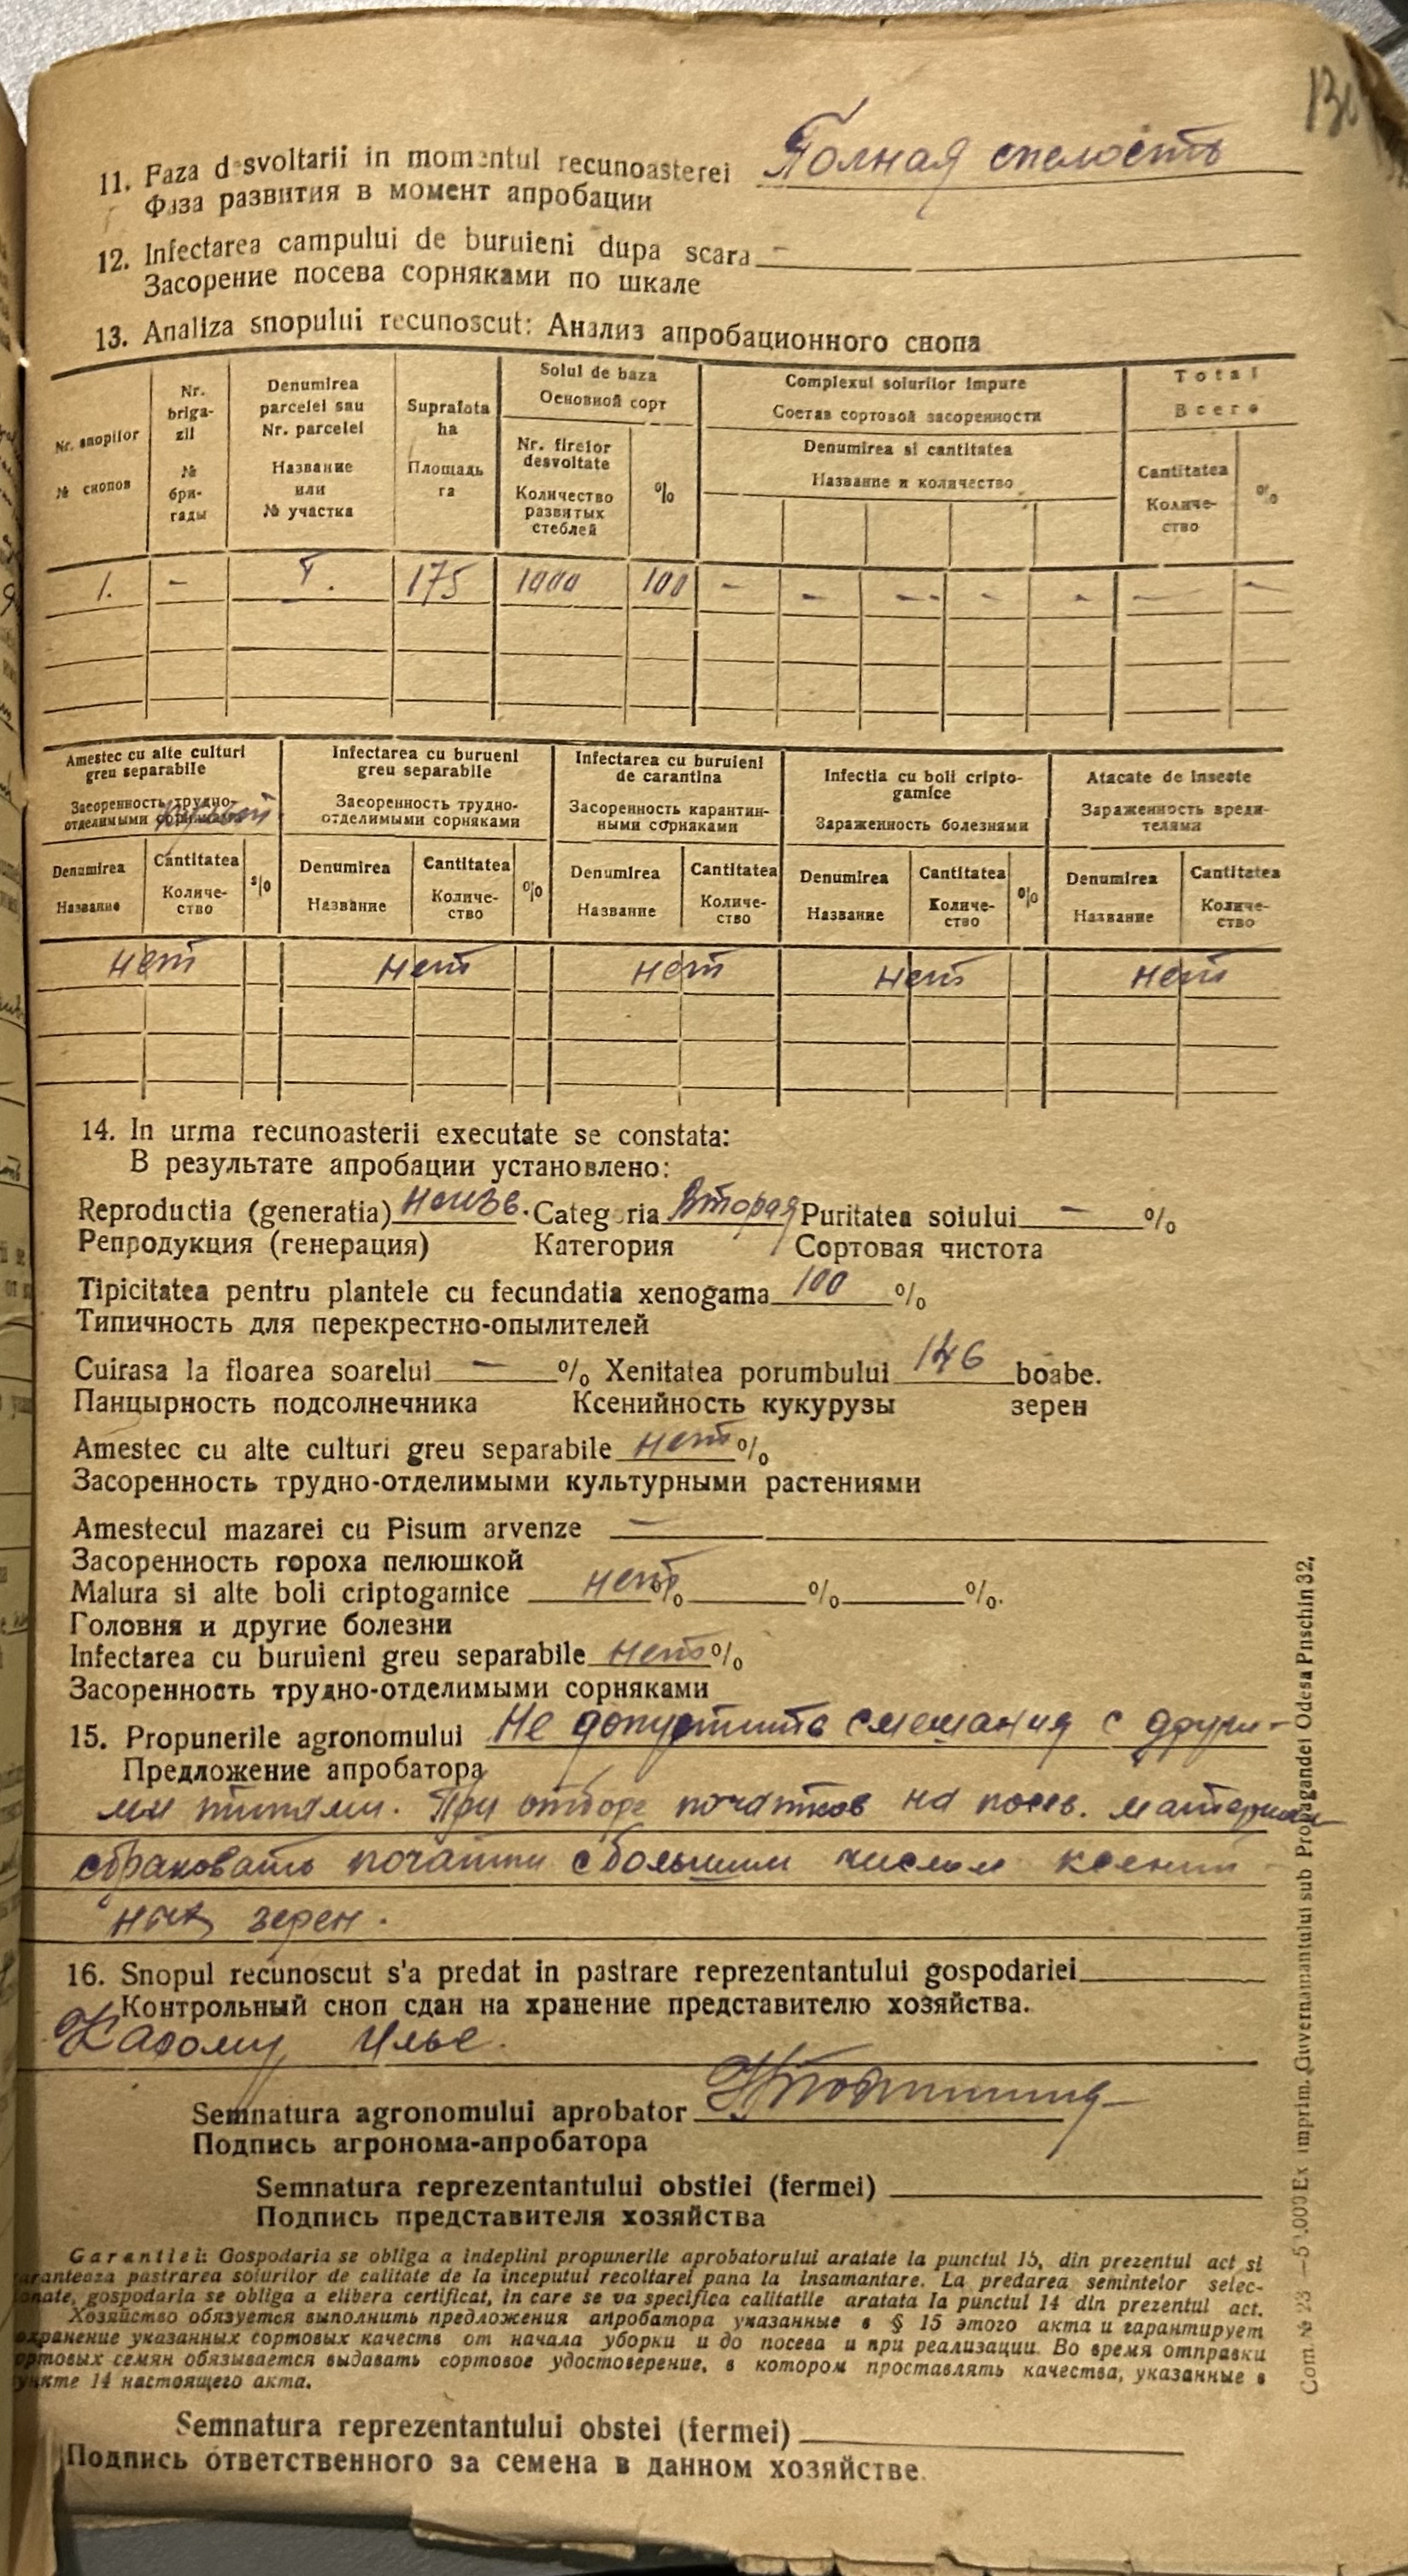 11. Faza desvoltarii in momentul recunoasterei Полная спелость
Фаза развития в момент апробации
12. Infectarea campului de buruieni dupa scara –
Засорение посева сорняками по шкале
13. Analiza snopului recunoscut: Анализ апробационного снопа
Nr. snopilor
№ снопов
Nr.
briga-
zii
№
бри-
гады
Denumirea
parcelei sau
Nr. parcelei
Название
или
№ участка
Suprafata
ha
Площадь
га
Soiul de baza
Основной сорт
Nr. firelor
desvoltate
Количество
развитых
стеблей
%
Complexul soiurilor impure
Состав сортовой засоренности
Denumirea si cantitatea
Название и количество
Total
Всего
Cantitatea
Количе-
ство
%
1. – I. 175 1000 100 – – – – – – –
Amestec cu alte culturi
greu separabile
Засоренность трудно-
отделимыми
Denumirea
Название
Cantitatea
Количе-
ство
%
Infectarea cu burueni
greu separabile
Засоренность трудно-
отделимыми сорняками
Denumirea
Название
Cantitatea
Количе-
ство
%
Infectarea cu buruieni
de carantina
Засоренность карантин-
ными сорняками
Denumirea
Название
Cantitatea
Количе-
ство
Infectia cu boli cripto-
gamice
Зараженность болезнями
Denumirea
Название
Cantitatea
Количе-
ство
%
Atacate de insecte
Зараженность вреди-
телями
Denumirea
Название
Cantitatea
Количе-
ство
нет нет нет нет нет
14. In urma recunoasterii executate se constata:
В результате апробации установлено:
Reproductia (generatia) неизв. Categoria Вторая Puritatea soiului – %
Репродукция (генерация) Категория Сортовая чистота
Tipicitatea pentru plantele cu fecundatia xenogama 100 %
Типичность для перекрестно-опылителей
Cuirasa la floarea soarelui – % Xenitatea porumbului 146 boabe.
Панцырность подсолнечника Ксенийность кукурузы зерен
Amestec cu alte culturi greu separabile нет %
Засоренность трудно-отделимыми культурными растениями
Amestecul mazarei cu Pisum arvenze –
Засоренность гороха пелюшкой
Malura si alte boli criptogamice нет % % %.
Головня и другие болезни
Infectarea cu buruieni greu separabile нет %
Засоренность трудно-отделимыми сорняками
15. Propunerile agronomului Не допустить смешания с други-
Предложение апробатора
ми типами. При отборе початков на посев. материал
сбраковать початки с большим числом ксений-
ных зерен.
16. Snopul recunoscut s'a predat in pastrare reprezentantului gospodariei
Контрольный сноп сдан на хранение представителю хозяйства.
Илье.
Semnatura agronomului aprobator
Подпись агронома-апробатора
Semnatura reprezentantului obstiei (fermei)
Подпись представителя хозяйства
Garantiei: Gospodaria se obliga a indeplini propunerile aprobatorului aratate la punctul 15, din prezentul act si
aranteaza pastrarea soiurilor de calitate de la inceputul recoltarei pana la insamantare. La predarea semintelor selec-
onate, gospodaria se obliga a elibera certificat, in care se va specifica calitatile aratata la punctul 14 din prezentul act.
Хозяйство обязуется выполнить предложения апробатора указанные в § 15 этого акта и гарантирует
охранение указанных сортовых качеств от начала уборки и до посева и при реализации. Во время отправки
ортовых семян обязывается выдавать сортовое удостоверение, в котором проставлять качества, указанные в
ункте 14 настоящего акта.
Semnatura reprezentantului obstei (fermei)
Подпись ответственного за семена в данном хозяйстве.
imprim. Guvernamantului sub Propagandei Odesa Pnschin 32,